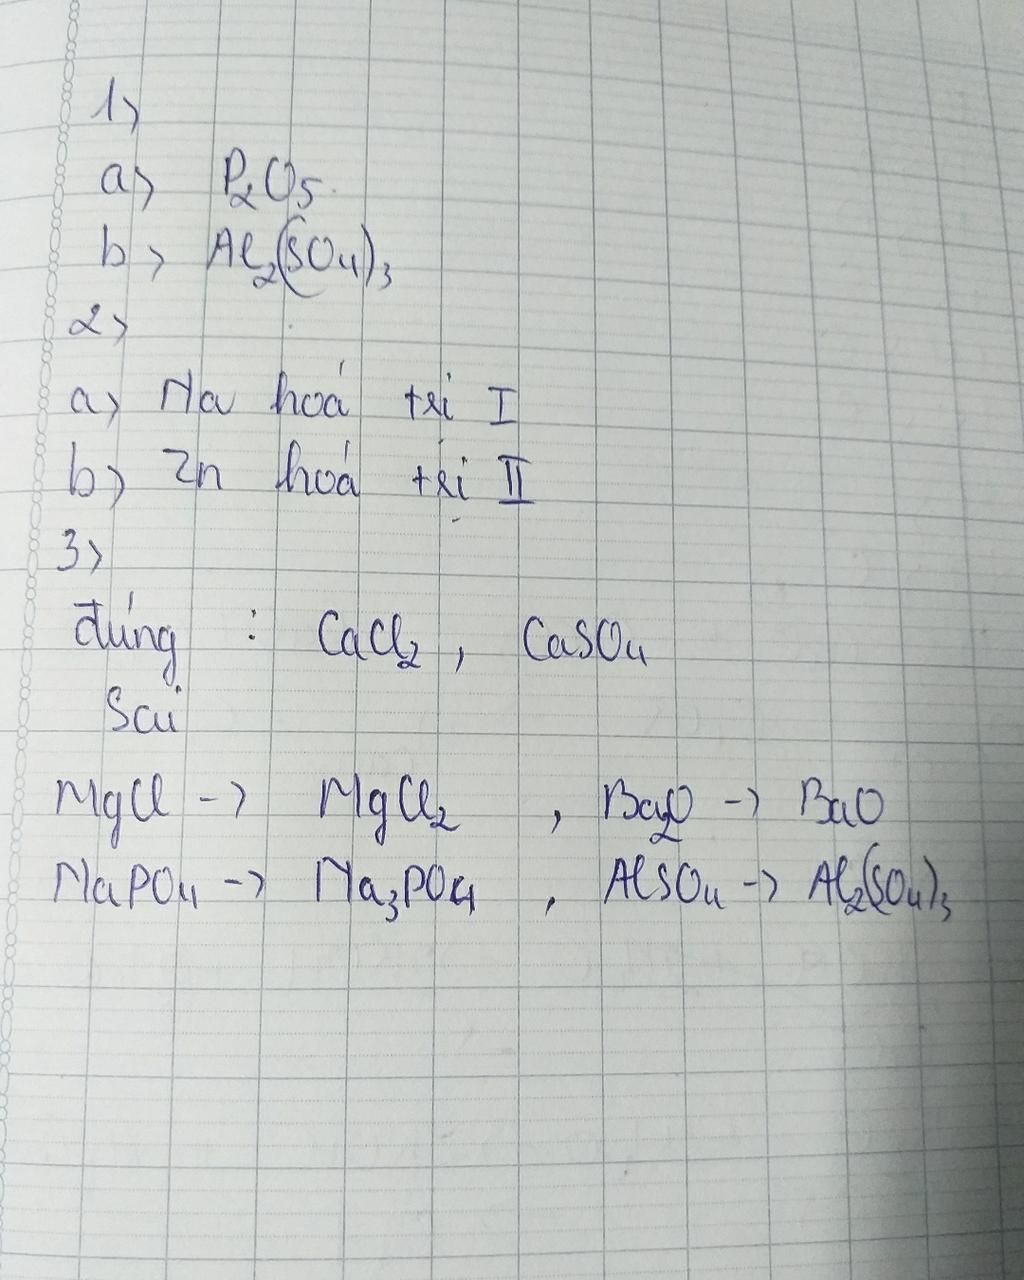 1)
a) P₂O₅.
b) Al₂(SO₄)₃
2)
a) Na hoá trị I
b) Zn hoá trị II
3)
đúng : CaCl₂, CaSO₄
Sai
MgCl -> MgCl₂ , Ba₂O -> BaO
NaPO₄ -> Na₃PO₄ , AlSO₄ -> Al₂(SO₄)₃